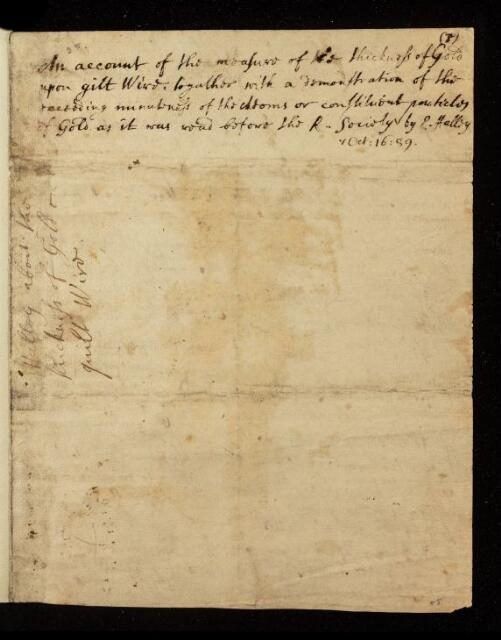 (7)
An account of the measure of the thickness of Gold
upon gilt Wire: togather with a demonstration of the
exceeding minuteness of the Atoms or constituent particles
of Gold as it was read before the R. Society by E. Halley
Oct: 16: 89.
Halley about the
thickness of Gold
guilt Wire.